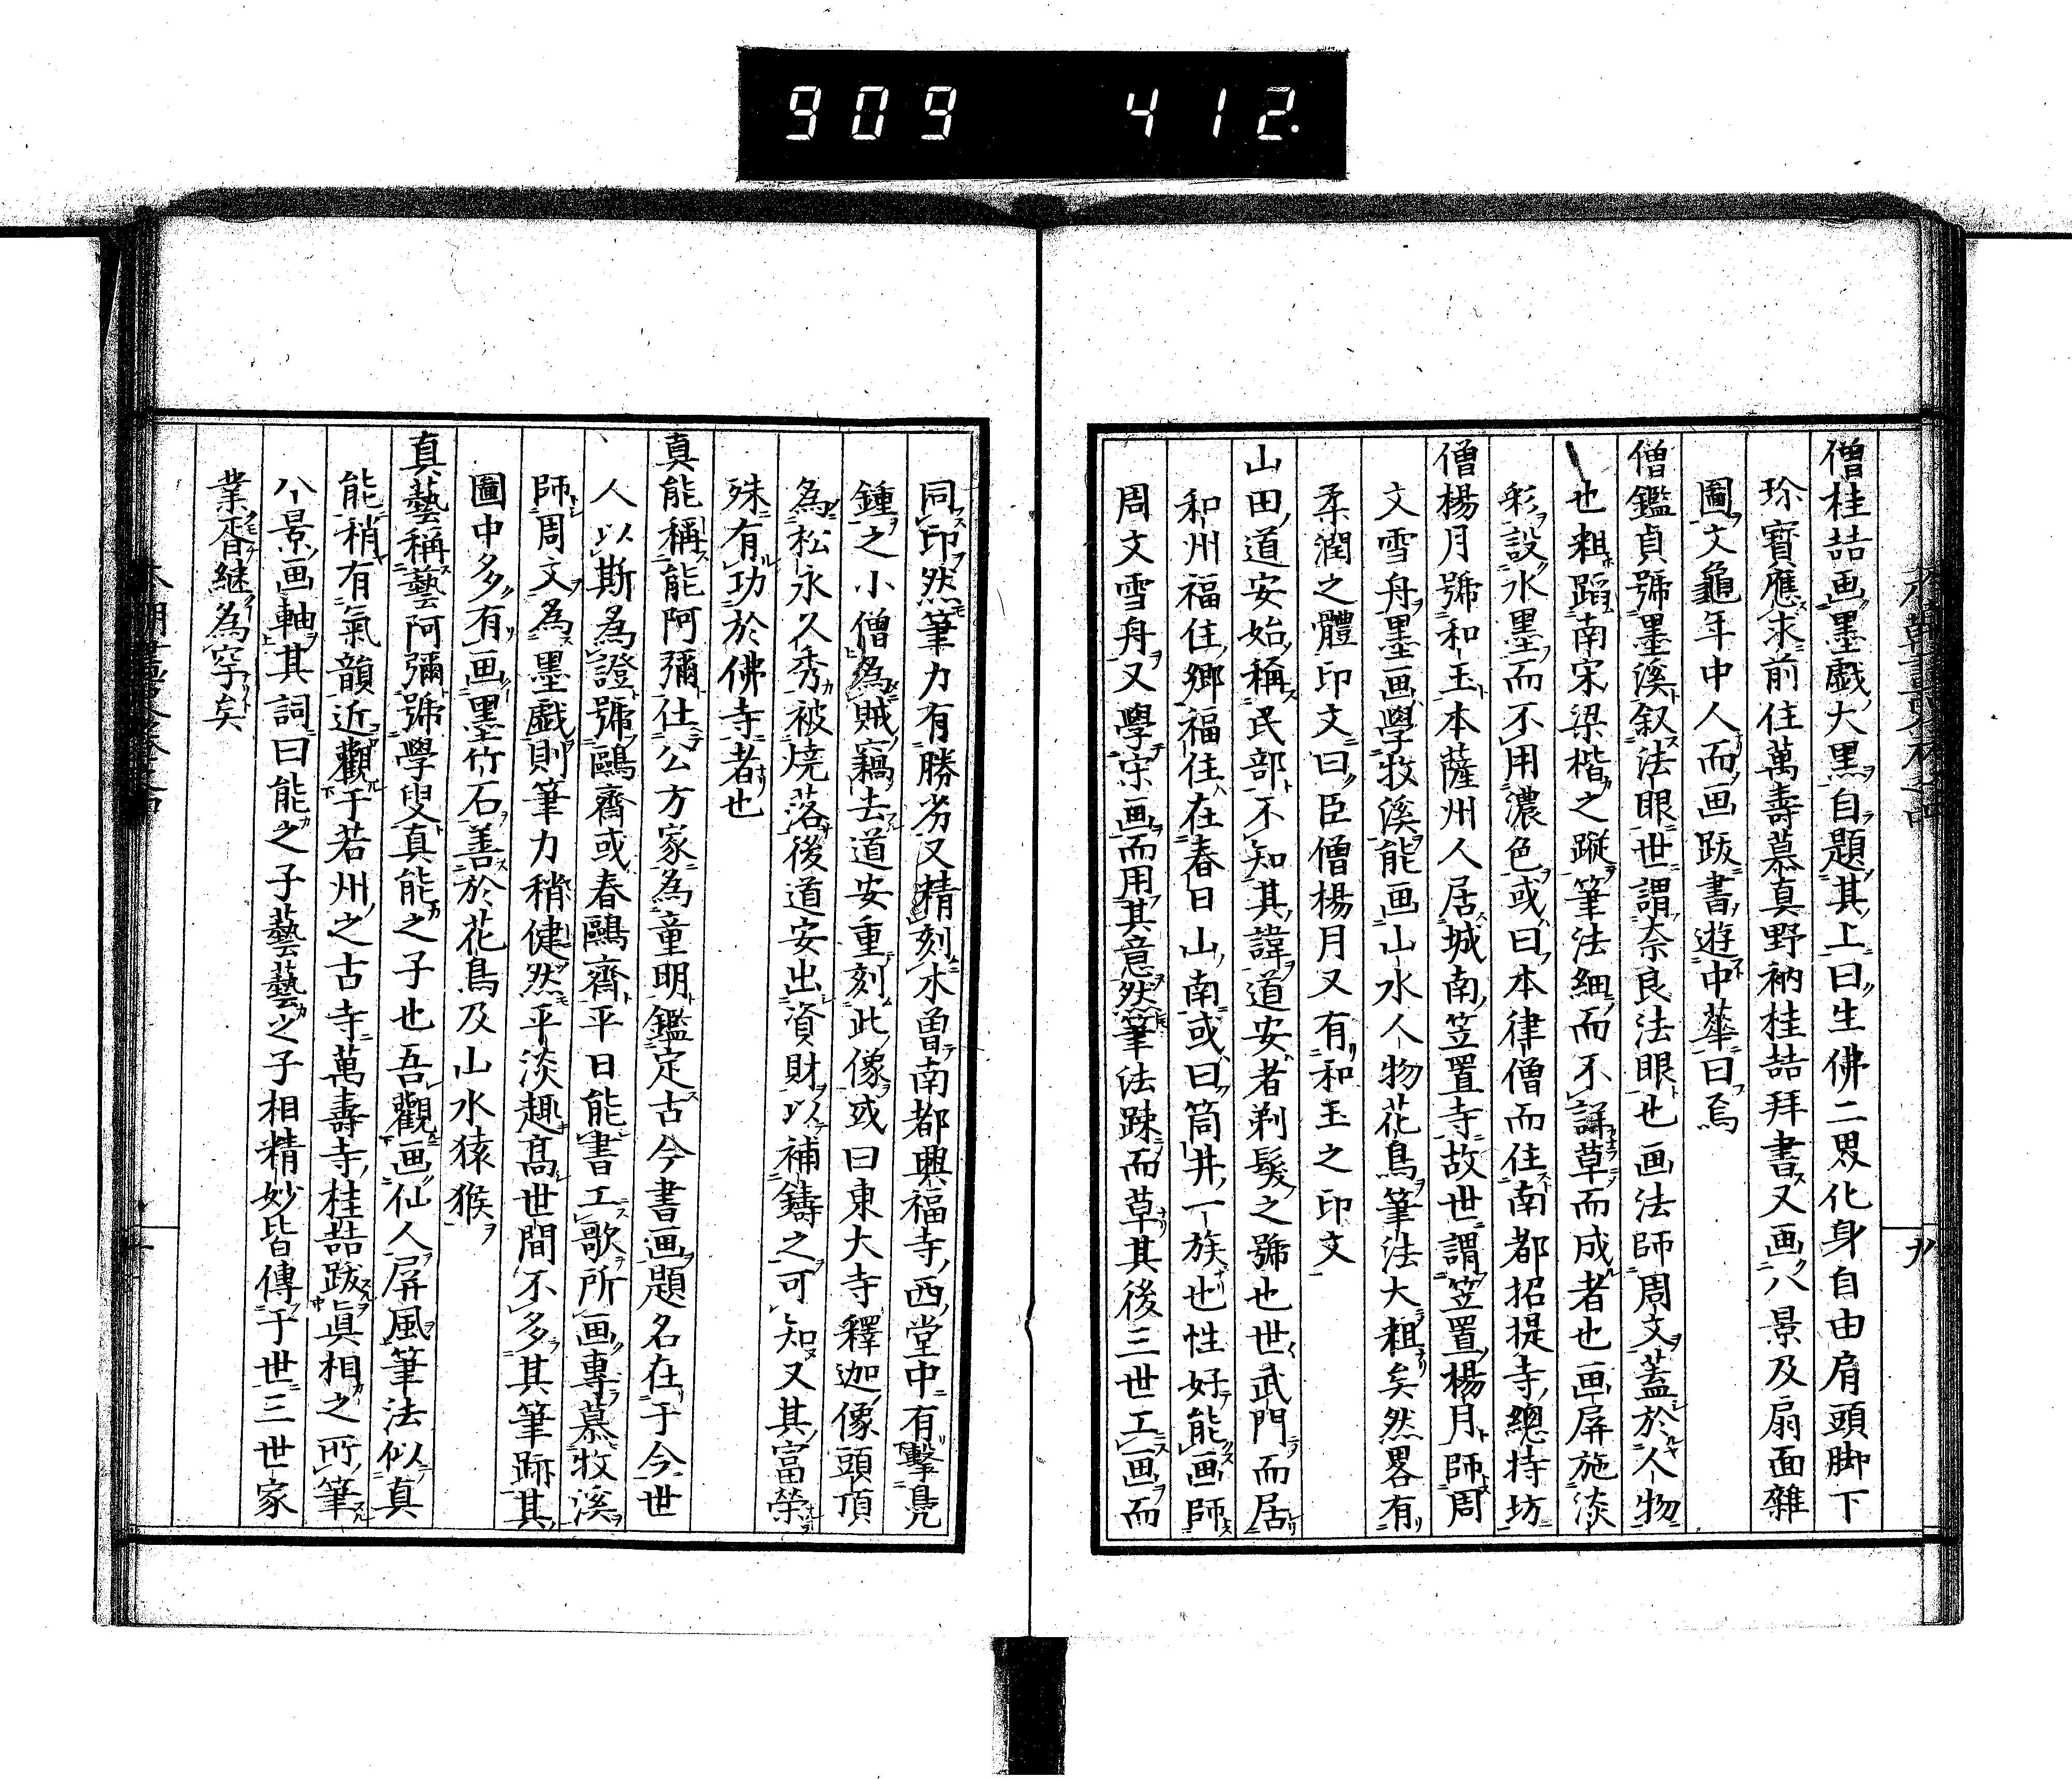 909 412.
僧桂喆画墨戯大黒自題其上曰生佛二界化身自由肩頭脚下
珎寳應求前住萬壽慕真野衲桂喆拜書又画八景及扇面雜
圖文龜年中人而画跋書遊中華曰烏
僧鑑貞號墨溪叙法眼世謂奈良法眼也画法師周文蓋於人物
也粗蹈南宋梁楷之蹤筆法細而不詳草而成者也画屏施淡
彩設水墨而不用濃色或曰本律僧而住南都招提寺總持坊
僧楊月號和玉本薩州人居城南笠置寺故世謂笠置楊月師周
文雪舟墨画學牧溪能画山水人物花鳥筆法大粗矣然畧有
柔潤之體印文曰臣僧楊月又有和玉之印文
山田道安始稱民部不知其諱道安者剃髮之號也世武門而居
和州福住鄉福住在春日山南或曰筒井一族也性好能画師
周文雪舟又學宋画而用其意然筆法踈而草其後三世工画而
同印然筆力有勝劣又精刻木曽南都興福寺西堂中有擊鳧
鍾之小僧為賊竊去道安重刻此像或曰東大寺釋迦像頭頂
為松永久秀被燒落後道安出資財以補鑄之可知又其富榮
殊有功於佛寺者也
真能稱能阿彌仕公方家為童明鑑定古今書画題名在于今世
人以斯為證號鷗齊或春鷗齊平日能書工歌所画專慕牧溪
師周文為墨戯則筆力稍健然平淡趣高世間不多其筆跡其
圖中多有画墨竹石善於花鳥及山水猿猴
真藝稱藝阿彌號學叟真能之子也吾觀画仙人屏風筆法似真
能稍有氣韻近觀于若州之古寺萬壽寺桂喆跋眞相之所筆
八景画軸其詞曰能之子藝藝之子相精妙皆傳于世三世家
業胥継為字矣